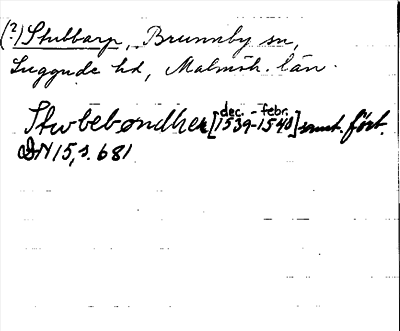 (?) Stubbarp, Brunnby sn,
Luggude hd, Malmöh. län.
dec. - febr.
Stwbebøndher [1539-1540] samt. fört.
DN 15, s. 681